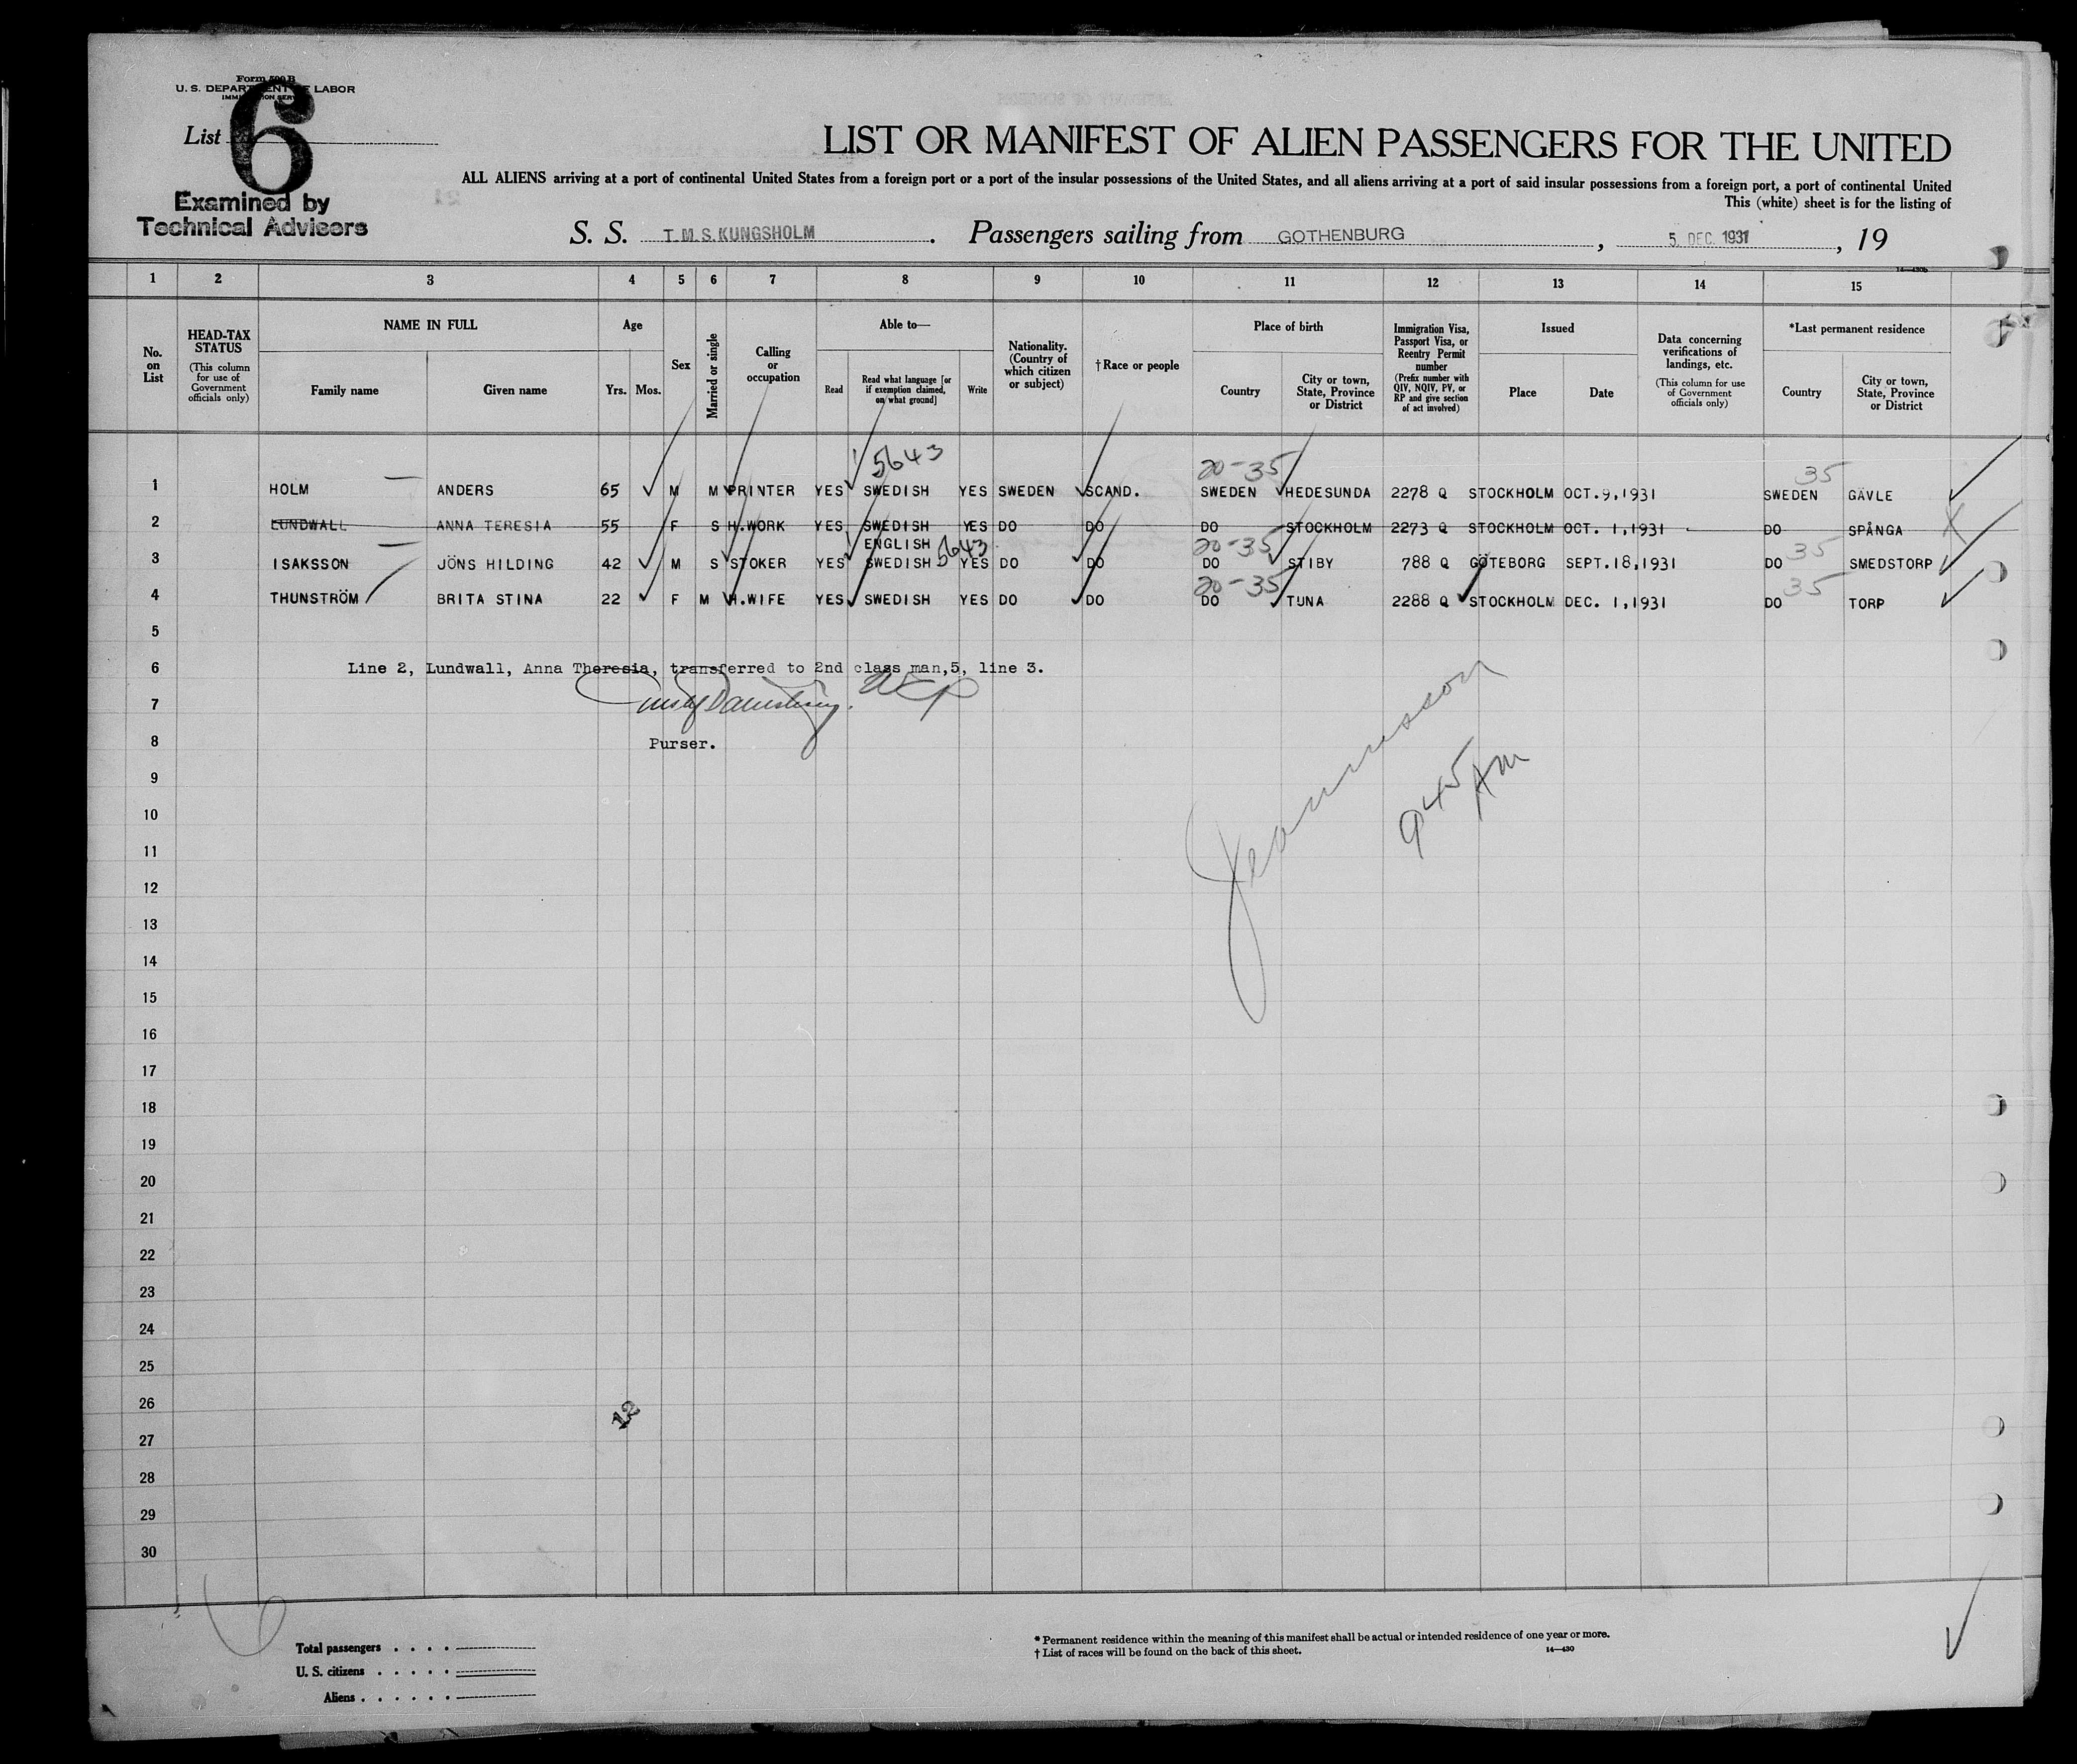 Form 500 B
U. S. DEPARTMENT OF LABOR
IMMIGRATION SERVICE
List 6
Examined by
Technical Advisors
LIST OR MANIFEST OF ALIEN PASSENGERS FOR THE UNITED
ALL ALIENS arriving at a port of continental United States from a foreign port or a port of the insular possessions of the United States, and all aliens arriving at a port of said insular possessions from a foreign port, a port of continental United
This (white) sheet is for the listing of
S. S. T.M.S. KUNGSHOLM. Passengers sailing from GOTHENBURG, 5. DEC. 1931, 19
14—430b
1 2 3 4 5 6 7 8 9 10 11 12 13 14 15
No. on List
HEAD-TAX STATUS (This column for use of Government officials only)
NAME IN FULL Family name Given name
Age Yrs. Mos.
Sex
Married or single
Calling or occupation
Able to— Read Read what language [or if exemption claimed, on what ground] Write
Nationality. (Country of which citizen or subject)
†Race or people
Place of birth Country City or town, State, Province or District
Immigration Visa, Passport Visa, or Reentry Permit number (Prefix number with QIV, NQIV, PV, or RP and give section of act involved)
Issued Place Date
Data concerning verifications of landings, etc. (This column for use of Government officials only)
*Last permanent residence Country City or town, State, Province or District
5643 20-35 35
1 HOLM ANDERS 65 M M PRINTER YES SWEDISH YES SWEDEN SCAND. SWEDEN HEDESUNDA 2278 Q STOCKHOLM OCT.9,1931 SWEDEN GÄVLE
2 LUNDWALL ANNA TERESIA 55 F S H.WORK YES SWEDISH YES DO DO DO STOCKHOLM 2273 Q STOCKHOLM OCT. 1,1931 DO SPÅNGA
ENGLISH 5643 20-35 35
3 ISAKSSON JÖNS HILDING 42 M S STOKER YES SWEDISH YES DO DO DO STIBY 788 Q GÖTEBORG SEPT.18,1931 DO SMEDSTORP
20-35 35
4 THUNSTRÖM BRITA STINA 22 F M H.WIFE YES SWEDISH YES DO DO DO TUNA 2288 Q STOCKHOLM DEC. 1,1931 DO TORP
5
6 Line 2, Lundwall, Anna Theresia, transferred to 2nd class man,5, line 3.
7
8 Purser.
9
945 AM
10
11
12
13
14
15
16
17
18
19
20
21
22
23
24
25
26
12
27
28
29
30
6
Total passengers . . . .
U. S. citizens . . . . .
Aliens . . . . . .
* Permanent residence within the meaning of this manifest shall be actual or intended residence of one year or more.
† List of races will be found on the back of this sheet.
14—430